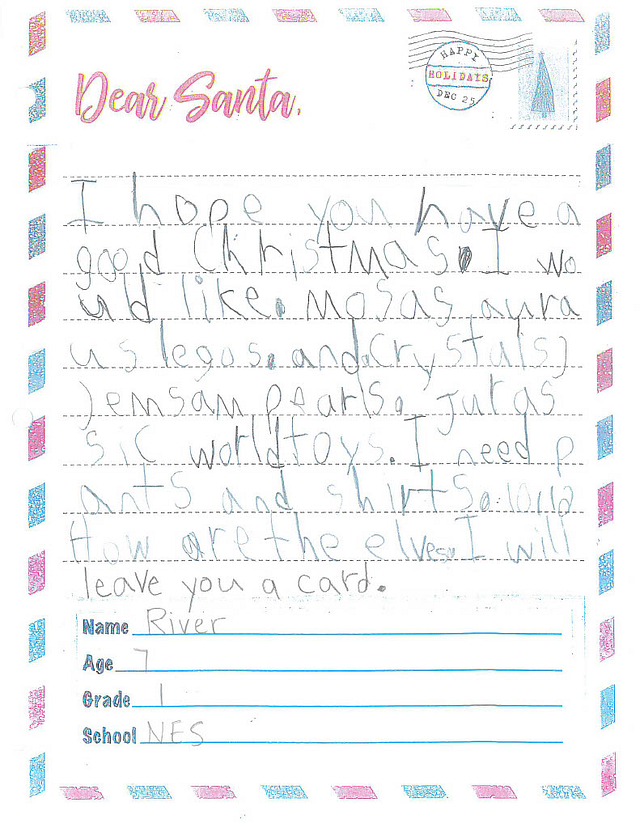 HAPPY
HOLIDAYS
DEC 25
Dear Santa,
I hope you have a
good Christmas. I wo
uld like. Mosasaura
us legos. and. Crystals)
)emsam pearls. juras
sic world toys. I need p
ants and shirts
How are the elves. I will
leave you a card.
Name River
Age 7
Grade 1
School NES